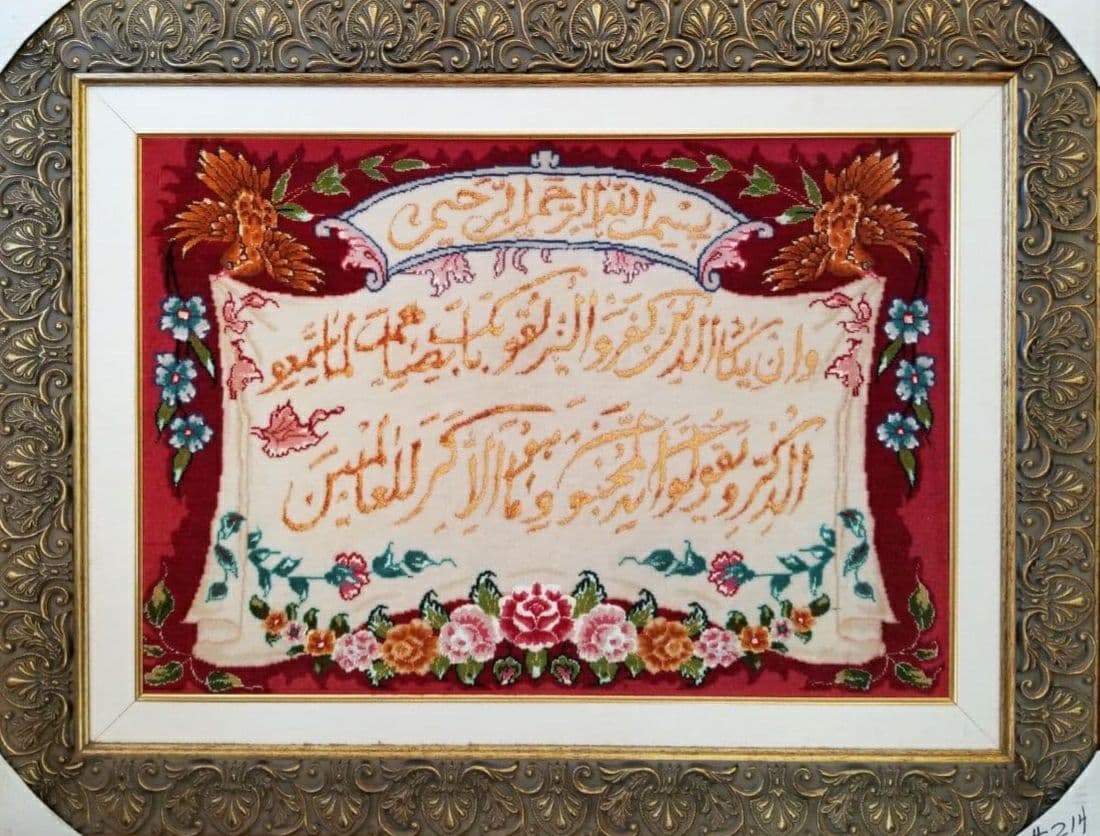 بسم الله الرحمن الرحيم
وان يكاد الذين كفروا ليزلقونك بابصارهم لما سمعوا
الذكر و يقولون انه لمجنون وما هو الا ذكر للعالمين
214